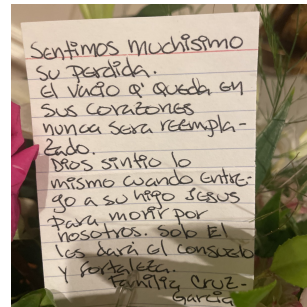 Sentimos muchisimo
su perdida.
El vacio q' queda en
sus corazones
nunca sera reempla-
zado.
Dios sintio lo
mismo cuando entre-
go a su hijo Jesus
para morir por
nosotros. Solo El
les dará el consuelo
y fortaleza.
Familia Cruz-
Garcia